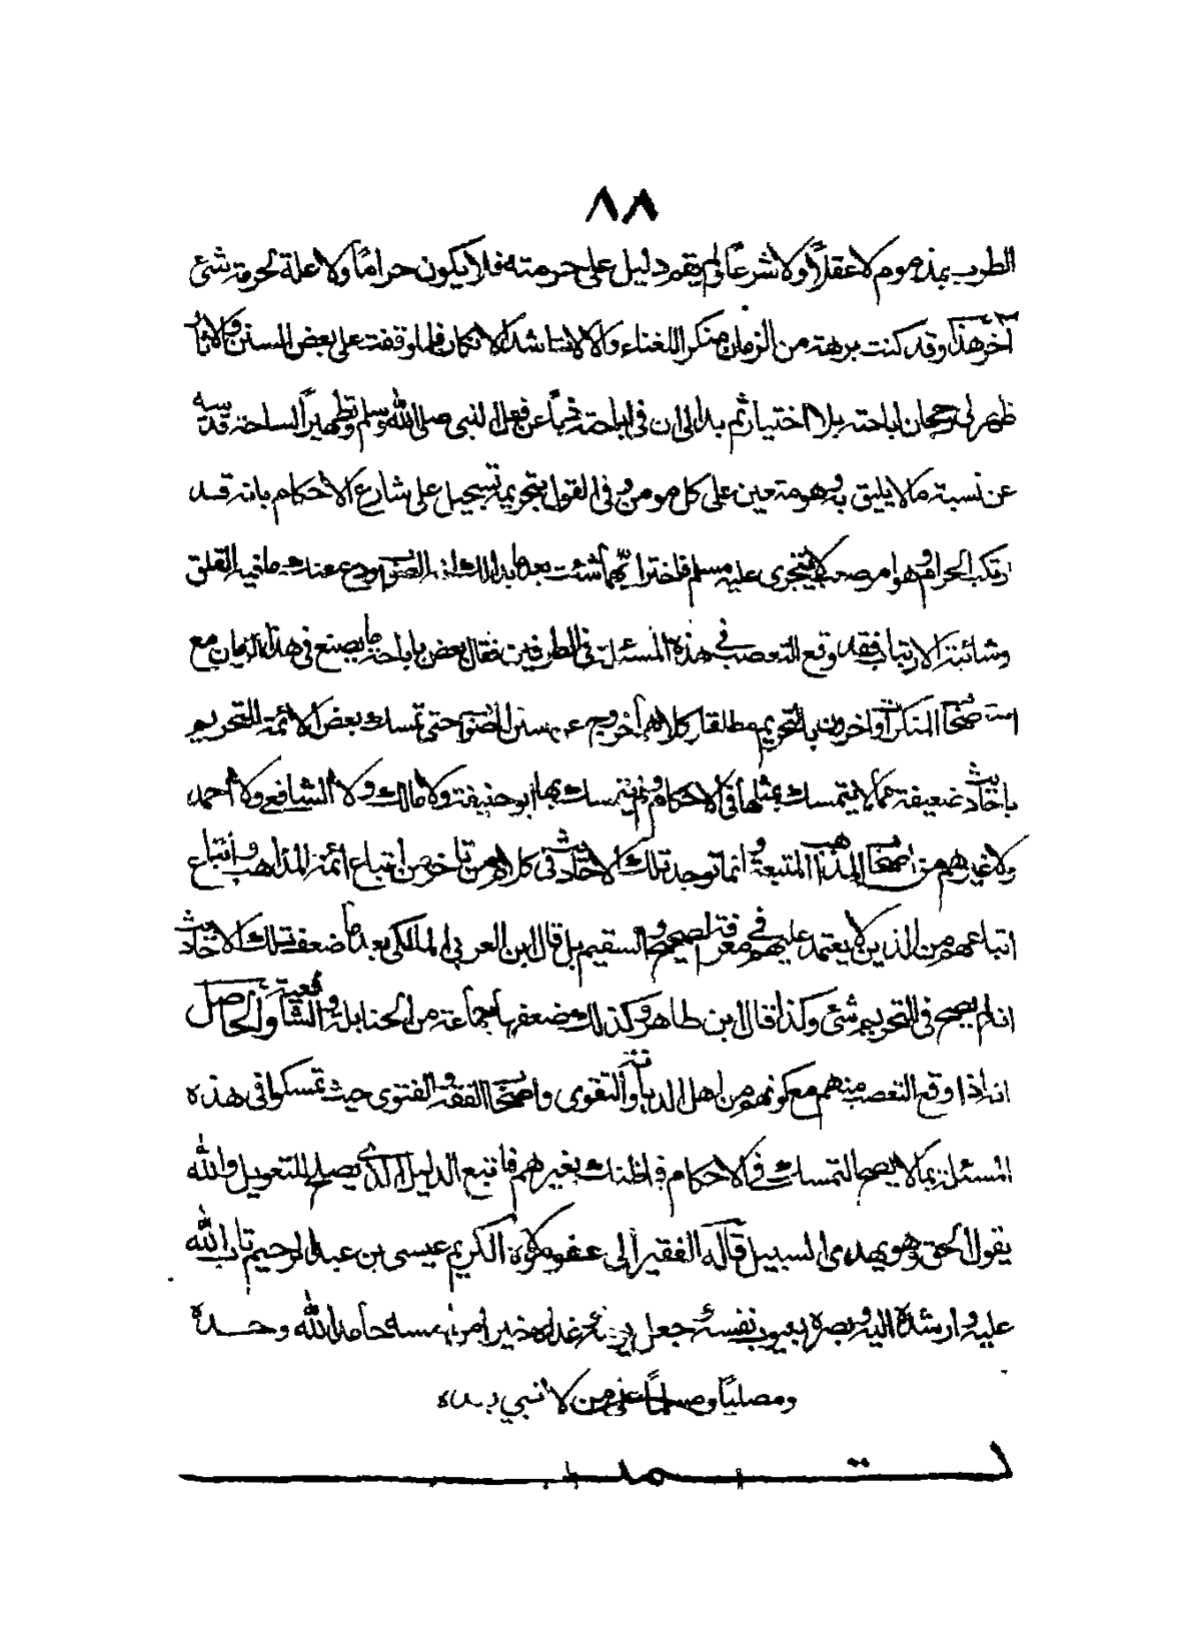 ٨٨
الطرب بمذموم لا عقلاً ولا شرعاً ولم يقم دليل على حرمته فلا يكون حراماً ولا علة لحرمة شئ
آخر هذا وقد كنت برهة من الزمان منكرا للغناء والالات اشد الانكار فلما وقفت على بعض السنن والاثار
ظهر لي رجحان اباحته بلا اختيار ثم بدا لي ان في اباحته ذباً عن فعل النبي صلى الله وسلم وتطهيراً لساحة قدسه
عن نسبة ما لا يليق به وهو متعين على كل مومن وفي القول بتحريمه تسجيل على شارع الاحكام بانه قد
ارتكب الحرام وهو امر صعب لا يتجرى عليه مسلم فاختر ايهما شئت بعد ما بدا لك الصواب ودع عنك ما فيه القلق
وشائبة الارتياب فقد وقع التعصب في هذه المسئلة في الطرفين فقال بعض باباحة ما يصنع في هذا الزمان مع
استصحاب المنكرات واخرون بالتحريم مطلقا وكلاهما خروج عن سنن الصواب حتى تمسك بعض الائمة للتحريم
باحاديث ضعيفة مما لا يتمسك بمثلها في الاحكام ولم يتمسك بها ابو حنيفة ولا مالك ولا الشافعي ولا احمد
ولا غيرهم من اصحاب المذاهب المتبعة وانما توجد تلك الاحاديث في كلام من تاخر من اتباع ائمة المذاهب واتباع
اتباعهم من الذين لا يعتمد عليهم في معرفة الصحيح والسقيم بل قال ابن العربي المالكي بعد ما ضعف تلك الاحاديث
انه لم يصح في التحريم شئ وكذا قال ابن طاهر وكذلك ضعفها جماعة من الحنابلة والشافعية والحاصل
انه اذا وقع التعصب منهم مع كونهم من اهل الديانة والتقوى واصحاب الفقه والفتوى حيث تمسكوا في هذه
المسئلة بما لا يصح التمسك في الاحكام فما ظنك بغيرهم فاتبع الدليل الذي يصلح للتعويل والله
يقول الحق وهو يهدى السبيل قاله الفقير الى عفو مولاه الكريم عيسى بن عبد الرحيم تاب الله
عليه وارشده اليه وبصره بعيوب نفسه وجعل غده خيرا من امسه حامدا لله وحده
ومصلياً ومسلماً على من لا نبي بعده
تمت